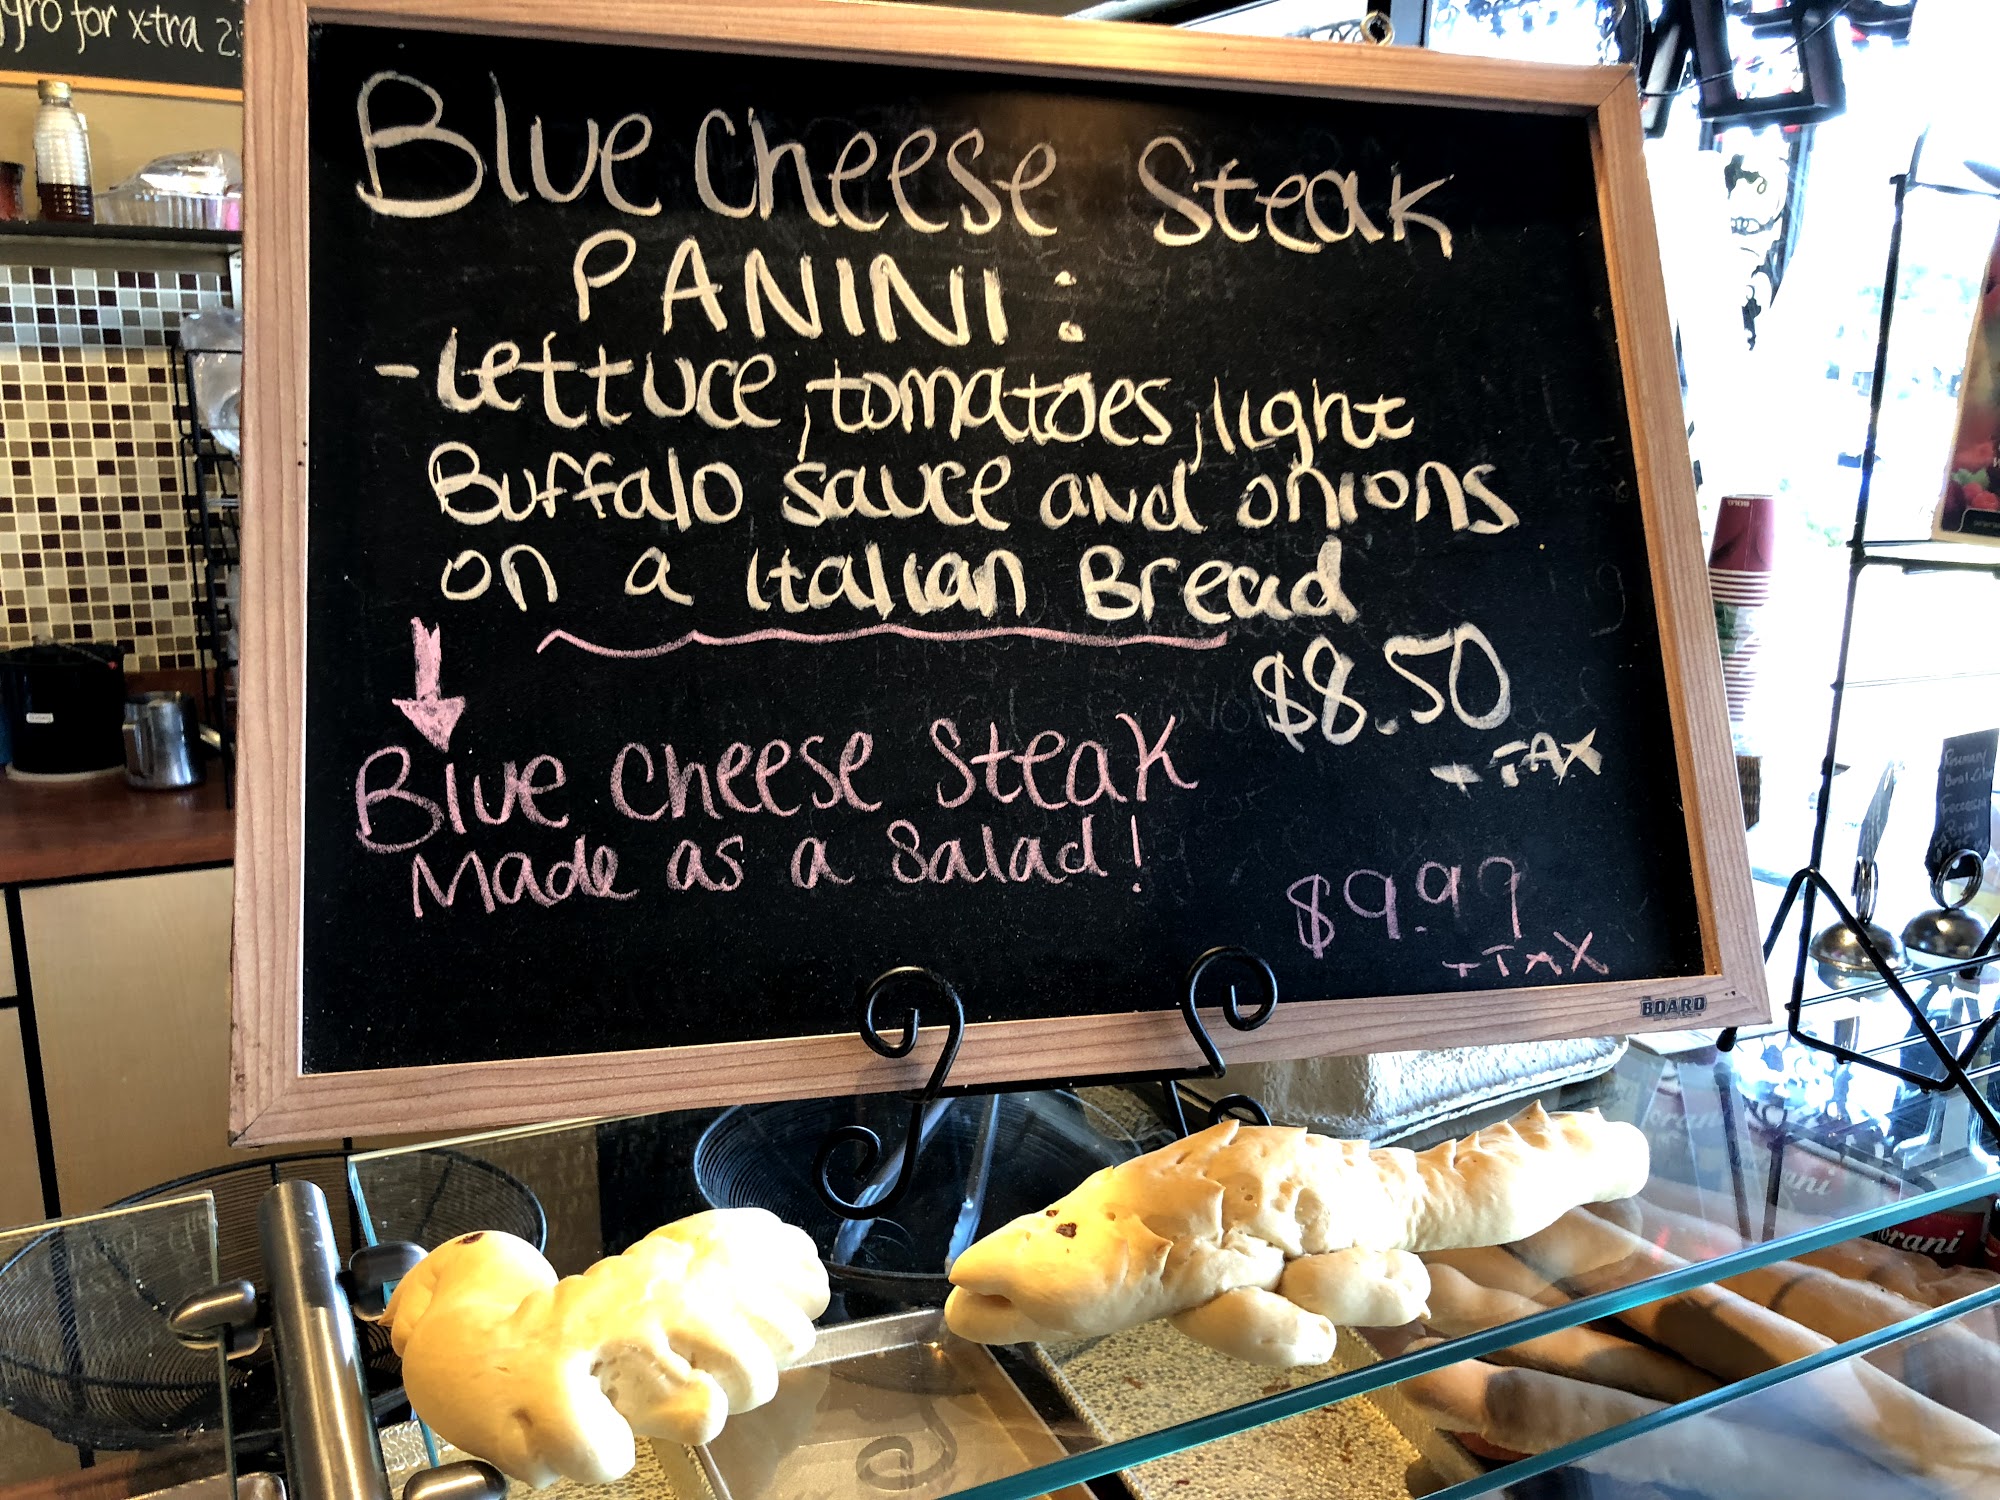 gyro for x-tra
Blue cheese Steak
PANINI:
-Lettuce, tomatoes, light
Buffalo sauce and onions
on a Italian Bread
$8.50
+TAX
Blue cheese Steak
Made as a Salad!
$9.99
+TAX
BOARD